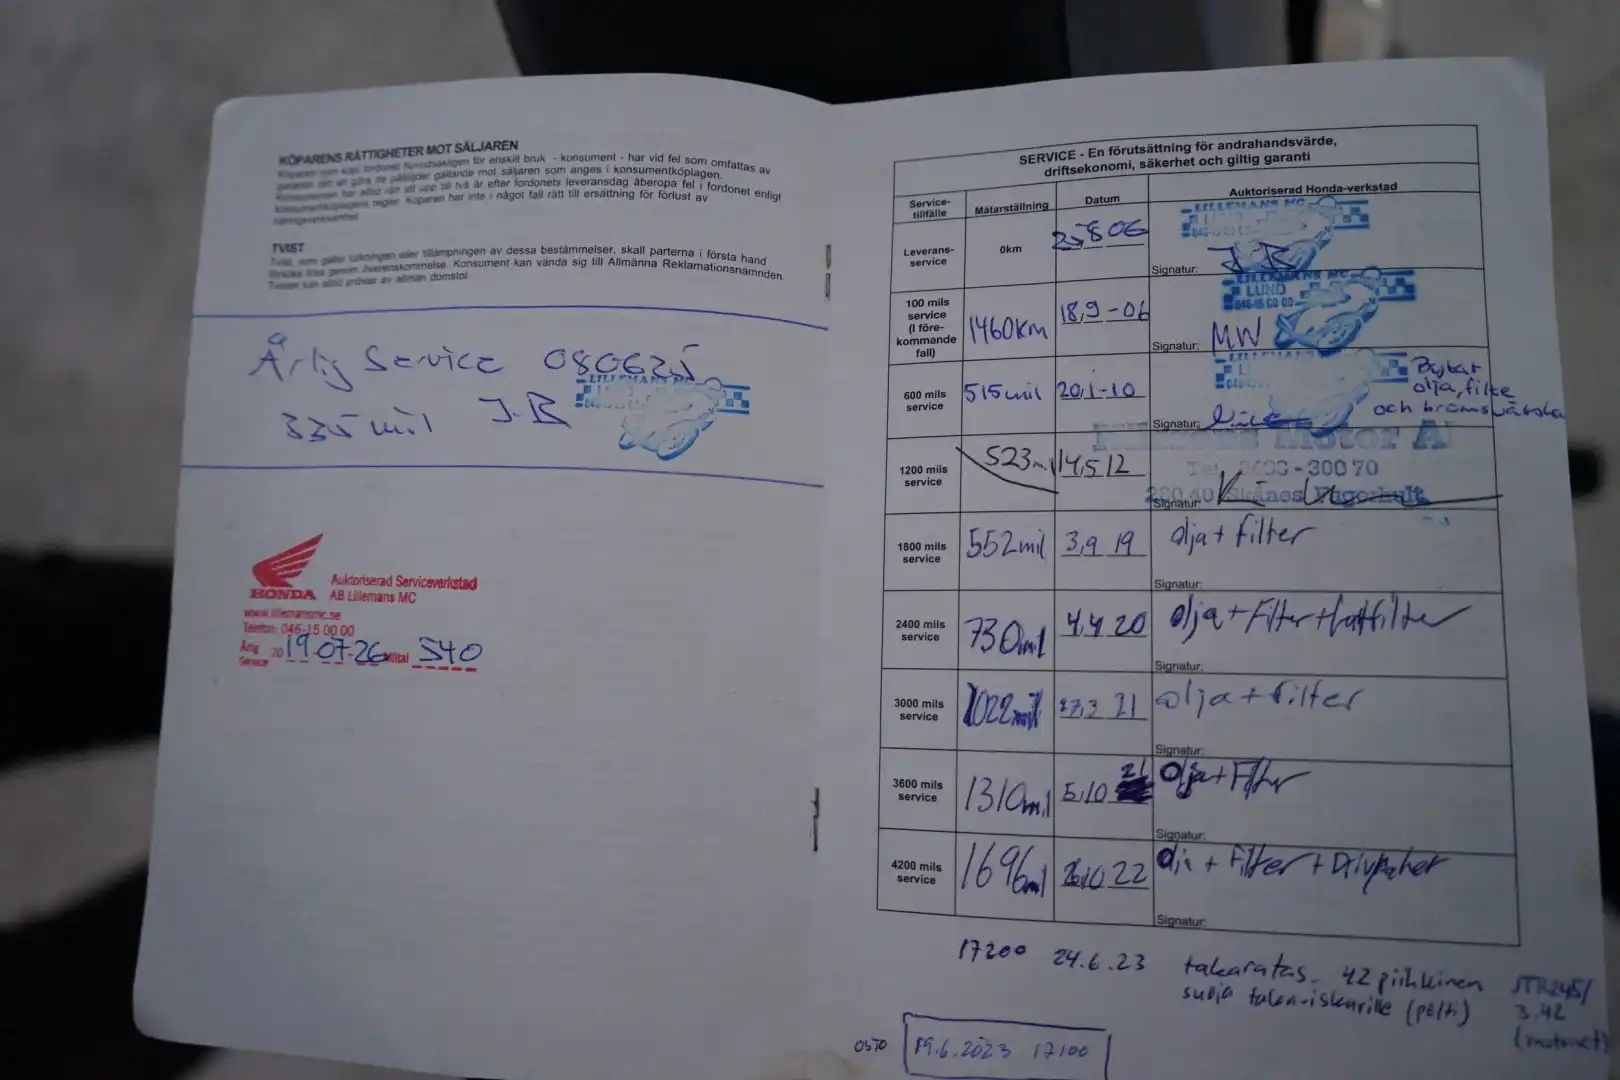 KÖPARENS RÄTTIGHETER MOT SÄLJAREN
Köparen som köpt fordonet huvudsakligen för enskilt bruk - konsument - har vid fel som omfattas av
garantin rätt att göra de påföljder gällande mot säljaren som anges i konsumentköplagen.
Konsumenten har alltid rätt att upp till två år efter fordonets leveransdag åberopa fel i fordonet enligt
konsumentköplagens regler. Köparen har inte i något fall rätt till ersättning för förlust av
näringsverksamhet
TVIST
Tvist, som gäller tolkningen eller tillämpningen av dessa bestämmelser, skall parterna i första hand
försöka lösa genom överenskommelse. Konsument kan vända sig till Allmänna Reklamationsnämnden.
Tvister kan alltid prövas av allmän domstol
Årlig Service 080625
335 mil J.B
LILLEMANS MC
HONDA Auktoriserad Serviceverkstad
AB Lillemans MC
www.lillemansmc.se
Telefon: 046-15 00 00
Årlig Service 20 19-07-26 Miltal 540
SERVICE - En förutsättning för andrahandsvärde,
driftsekonomi, säkerhet och giltig garanti
Service-tillfälle Mätarställning Datum Auktoriserad Honda-verkstad
Leverans-service 0km 25 8 06 LILLEMANS MC LUND
Signatur: JB
100 mils service (I före-kommande fall) 1460km 18,9-06 LILLEMANS MC LUND 046-15 00 00
Signatur: MW
600 mils service 515mil 20,1-10 Bytat olja, filte och bromsvätska
Signatur:
1200 mils service 523mil 14,5,12 Motor A
Tel. 0433-300 70
280 40 Skånes Fagerhult
Signatur:
1800 mils service 552mil 3,9 19 olja + filter
Signatur:
2400 mils service 730mil 4,4 20 olja + Filter + luftfilter
Signatur:
3000 mils service 1022mil 27,3 21 olja + filter
Signatur:
3600 mils service 1310mil 5,10 21 Olja + Filter
Signatur:
4200 mils service 1696mil 10 22 olja + Filter + Drivpaket
Signatur:
17200 24.6.23 takaratas - 42 piikkinen JTR245/
sarja takaiskarille (pelti) 3.42
OSTO 19.6.2023 17100